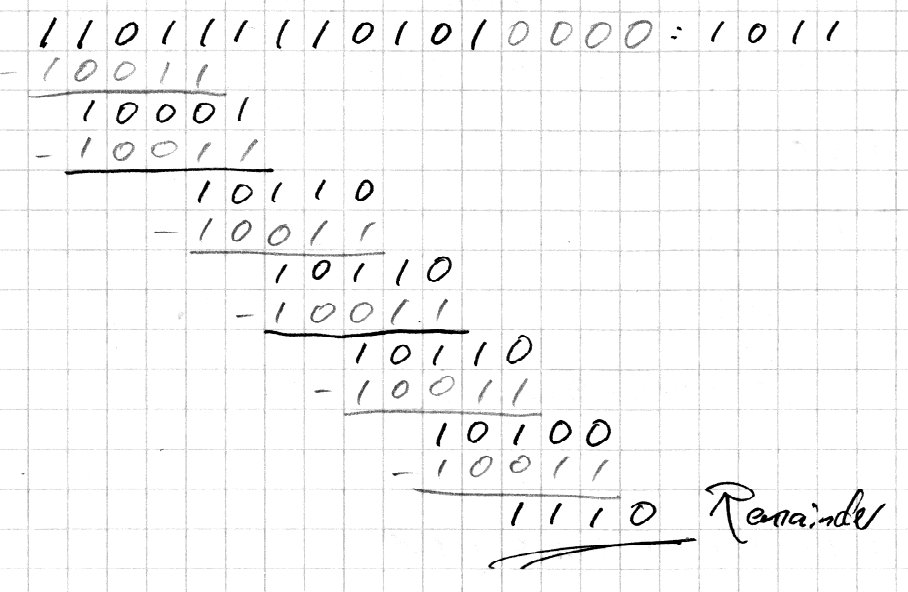 1101111101010000:1011
-10011
10001
-10011
10110
-10011
10110
-10011
10110
-10011
10100
-10011
1110 Remainder